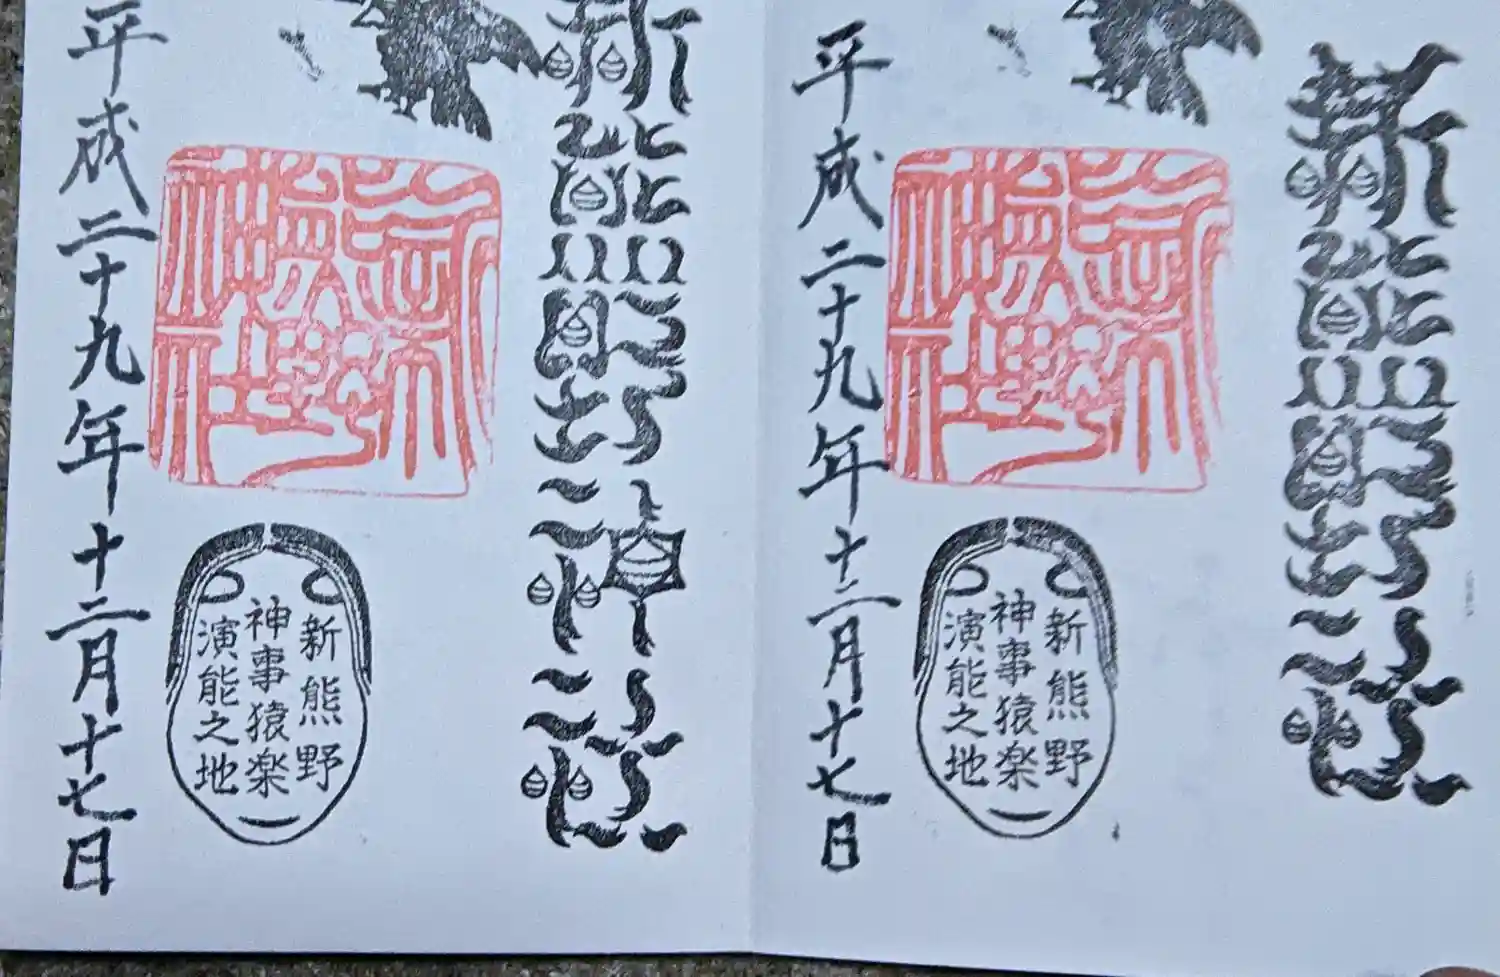 新熊野社
新熊野
神事猿楽
演能之地
平成二十九年十二月十七日
新熊野神社
新熊野
神事猿楽
演能之地
平成二十九年十二月十七日